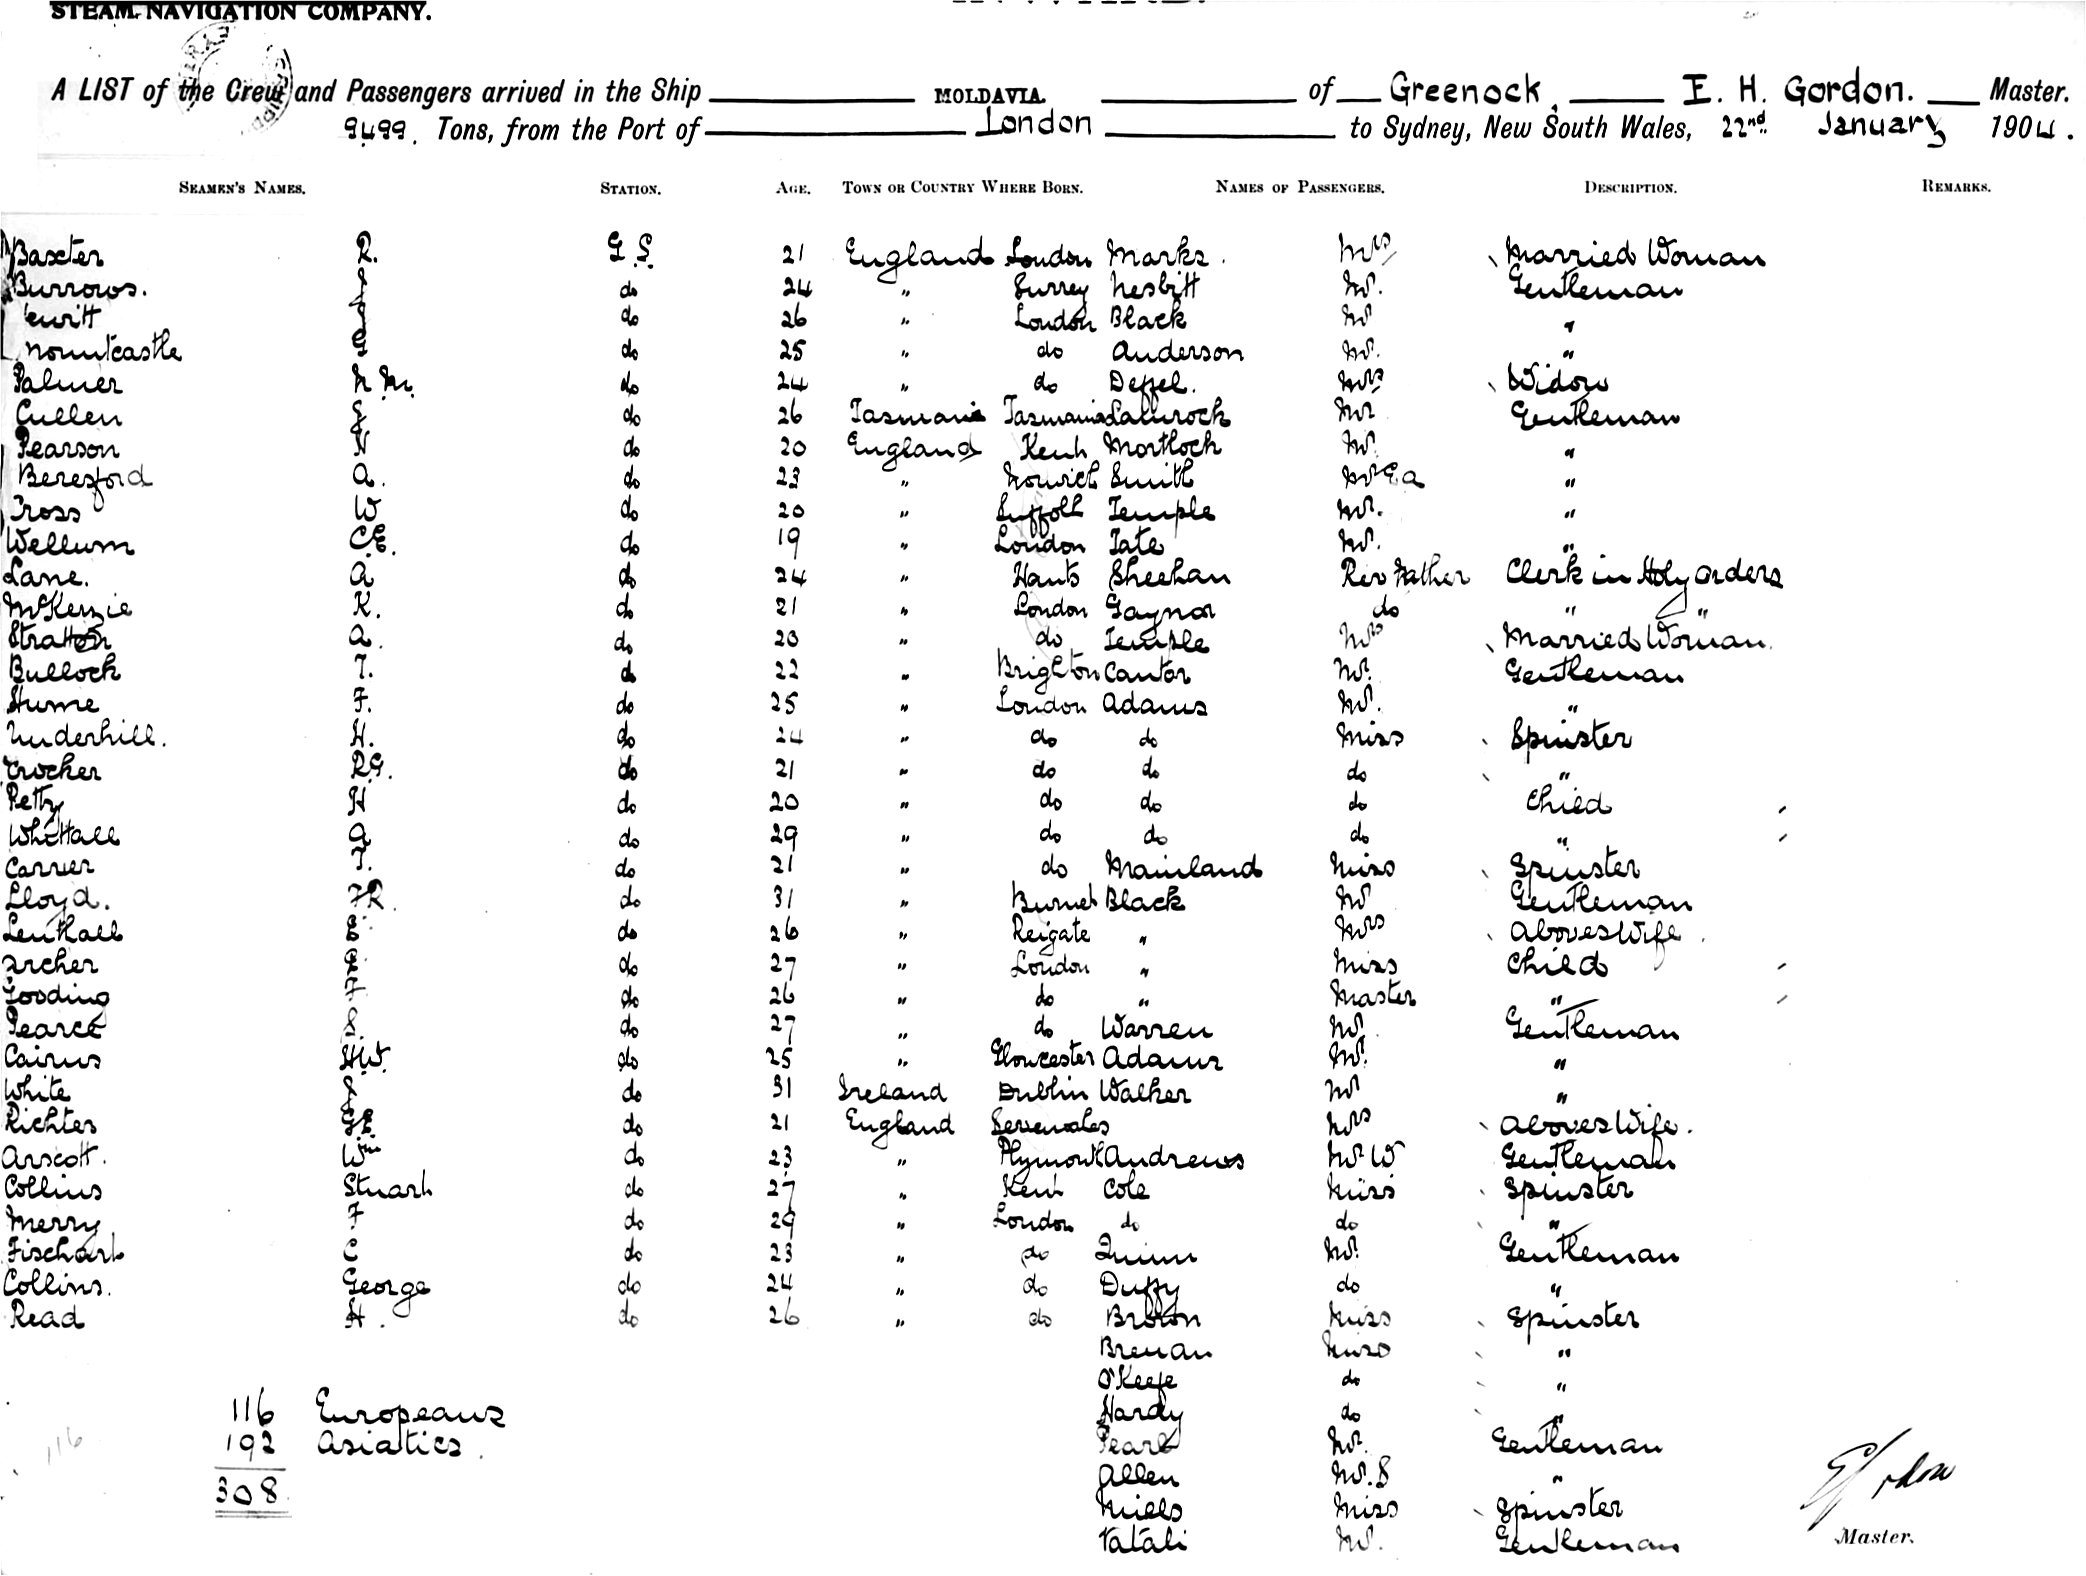 STEAM NAVIGATION COMPANY.
A LIST of the Crew and Passengers arrived in the Ship MOLDAVIA. of Greenock, E. H. Gordon. Master.
9499. Tons, from the Port of London to Sydney, New South Wales, 22nd January 1904.
SEAMEN'S NAMES. STATION. AGE. TOWN OR COUNTRY WHERE BORN. NAMES OF PASSENGERS. DESCRIPTION. REMARKS.
Baxter R. G.S. 21 England London Marks. Mrs Married Woman
Burrows. J do 24 " Surrey Nesbitt Mr. Gentleman
J do 26 " London Black Mr "
Mountcastle G do 25 " do Anderson Mr. "
Palmer N M. do 24 " do Deffel. Mrs Widow
Cullen J do 26 Tasmania Tasmania Mr Gentleman
Pearson H do 20 England Kent Mortlock Mr. "
Beresford A. do 23 " Norwich Smith Mr E A "
Cross W do 20 " Suffolk Temple Mr. "
Wellum C.E. do 19 " London Tate Mr. "
Lane. A do 24 " Hants Sheehan Rev Father Clerk in Holy Orders
McKenzie K. do 21 " London Gaynor do " "
Stratton A. do 20 " do Temple Mrs Married Woman.
Bullock T. do 22 " Brighton Cantor Mr. Gentleman
Hume F. do 25 " London Adams Mr. "
Underhill. H. do 24 " do do Miss Spinster
Crocker R.G. do 21 " do do do "
Petty H do 20 " do do do Child
Whittall A do 29 " do do do "
Carrier T. do 21 " do Mainland Miss Spinster
Lloyd. F R. do 31 " Black Mr Gentleman
Lenthall E do 26 " Reigate " Mrs Aboves Wife.
Archer do 27 " London " Miss Child
Gooding F do 26 " do " Master "
Pearce S. do 27 " do Warren Mr. Gentleman
Cairns H.W. do 25 " Gloucester Adams Mr. "
White J do 31 Ireland Dublin Walker Mr "
Richter G.E. do 21 England Sevenoakes Mrs Aboves Wife.
Arscott. Wm do 23 " Plymouth Andrews Mr W Gentleman
Collins Stuart do 27 " Kent Cole Miss Spinster
Merry F do 29 " London do do "
Fischart C do 23 " do Quinn Mr. Gentleman
Collins. George do 24 " do Duffy do "
Read H. do 26 " do Brown Miss Spinster
Brenan Miss "
O'Keefe do "
116 Europeans Hardy do "
116 192 Asiatics. Pearl Mr. Gentleman
308 Allen Mr. S "
Miels Miss Spinster
Mr. Gentleman
Master.